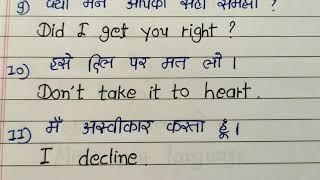 9) क्या मैंने आपको सही समझा ?
Did I get you right ?
10) इसे दिल पर मत लो ।
Don't take it to heart .
11) मैं अस्वीकार करता हूँ ।
I decline .